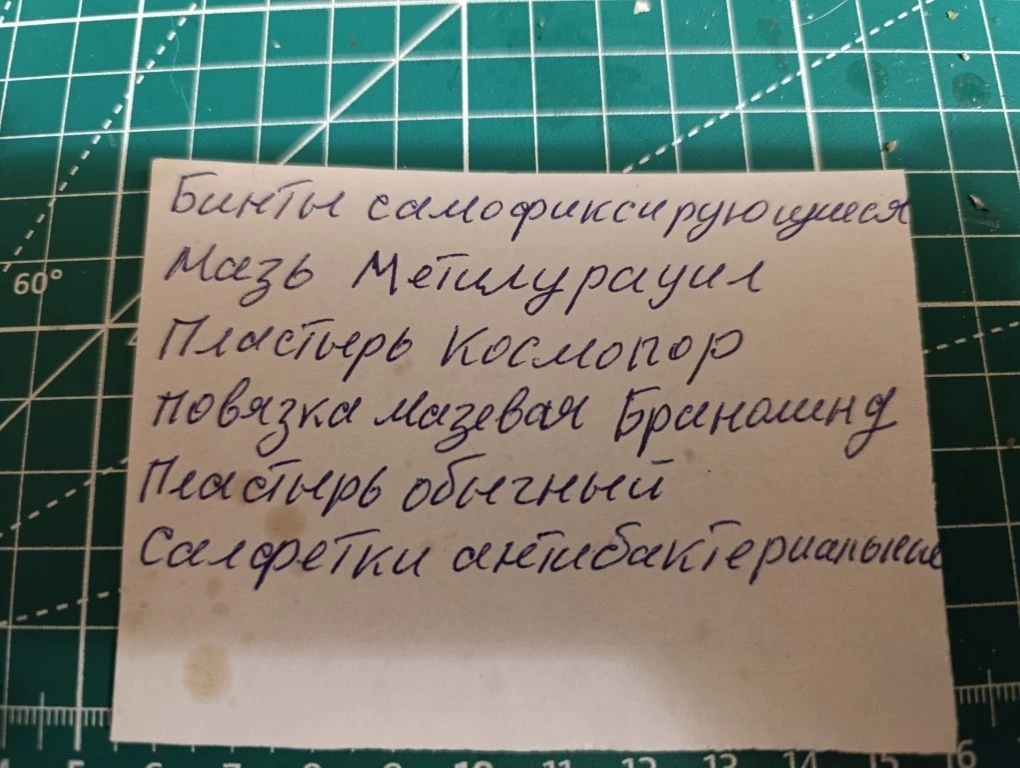 60°
Бинты самофиксирующиеся
Мазь Метилурацил
Пластырь Космопор
повязка мазевая Бранолинд
Пластырь обычный
Салфетки антибактериальные
5 6 7 8 9 10 11 12 13 14 15 16